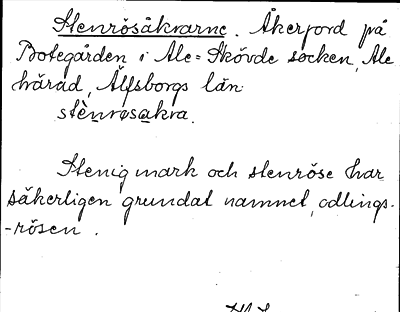 Stenrösåkrarne. Åkerjord på
Botegården i Ale-Skövde socken, Ale
härad, Älfsborgs län.
stènrøsakra.
Stenig mark och stenröse har
säkerligen grundat namnet, odlings-
-rösen.